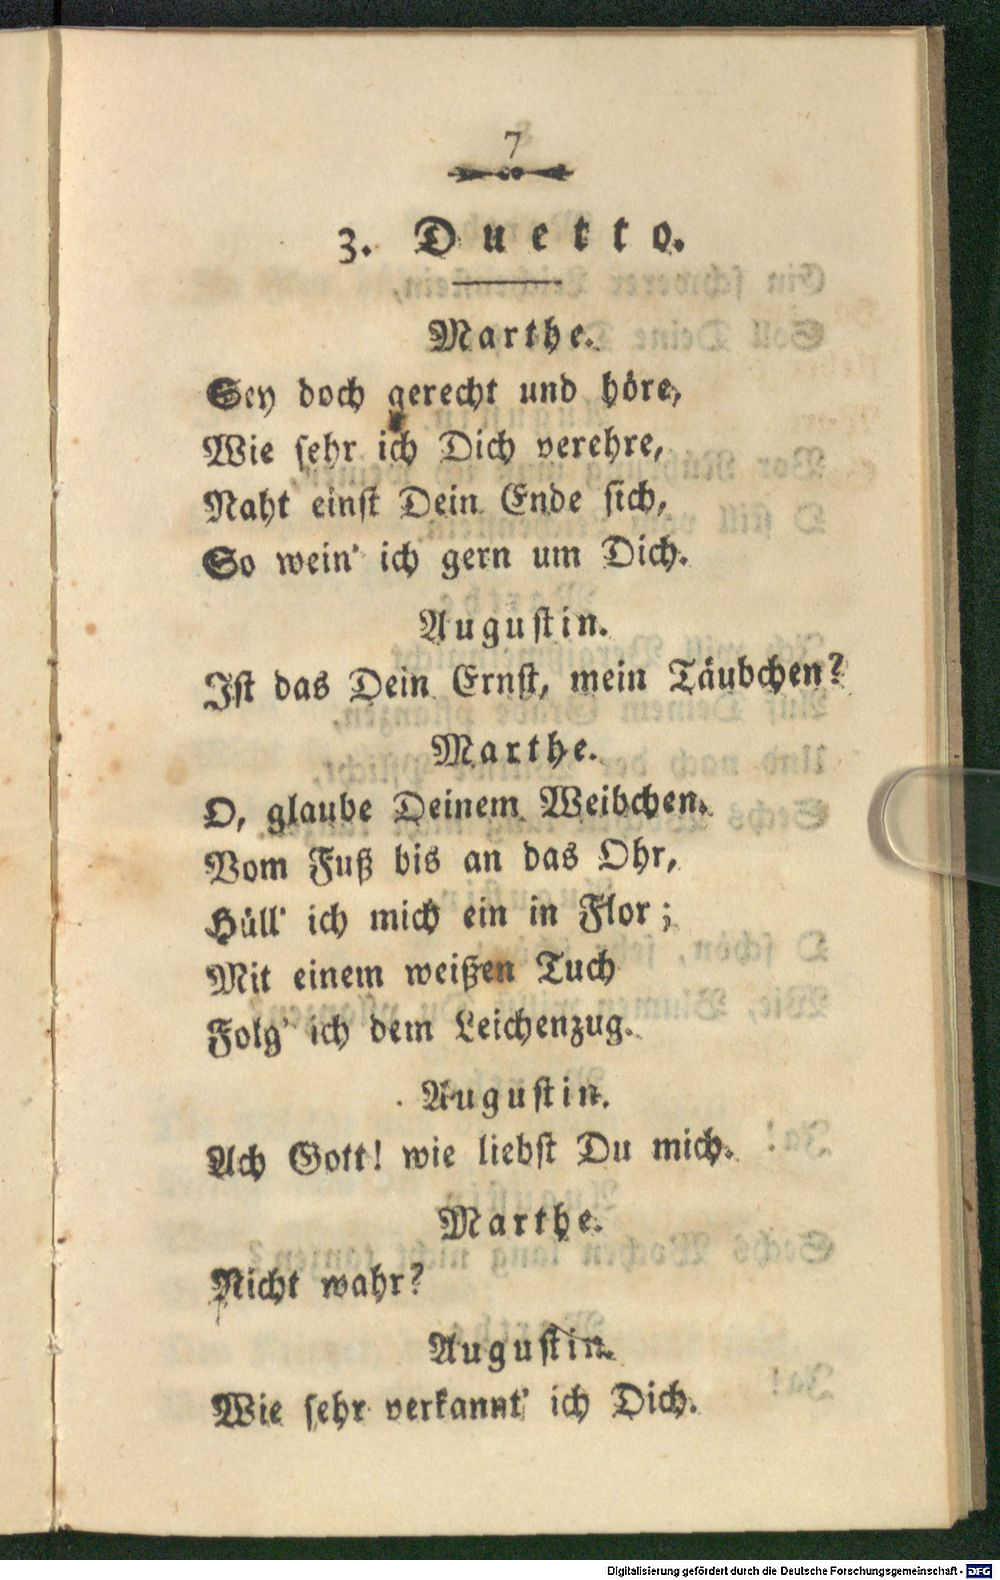 7
3. Duetto.
Marthe.
Sey doch gerecht und höre,
Wie sehr ich Dich verehre,
Naht einst Dein Ende sich,
So wein' ich gern um Dich.
Augustin.
Ist das Dein Ernst, mein Täubchen?
Marthe.
O, glaube Deinem Weibchen.
Vom Fuß bis an das Ohr,
Hüll' ich mich ein in Flor;
Mit einem weißen Tuch
Folg' ich dem Leichenzug.
Augustin.
Ach Gott! wie liebst Du mich.
Marthe.
Nicht wahr?
Augustin.
Wie sehr verkannt' ich Dich.
Digitalisierung gefördert durch die Deutsche Forschungsgemeinschaft - DFG